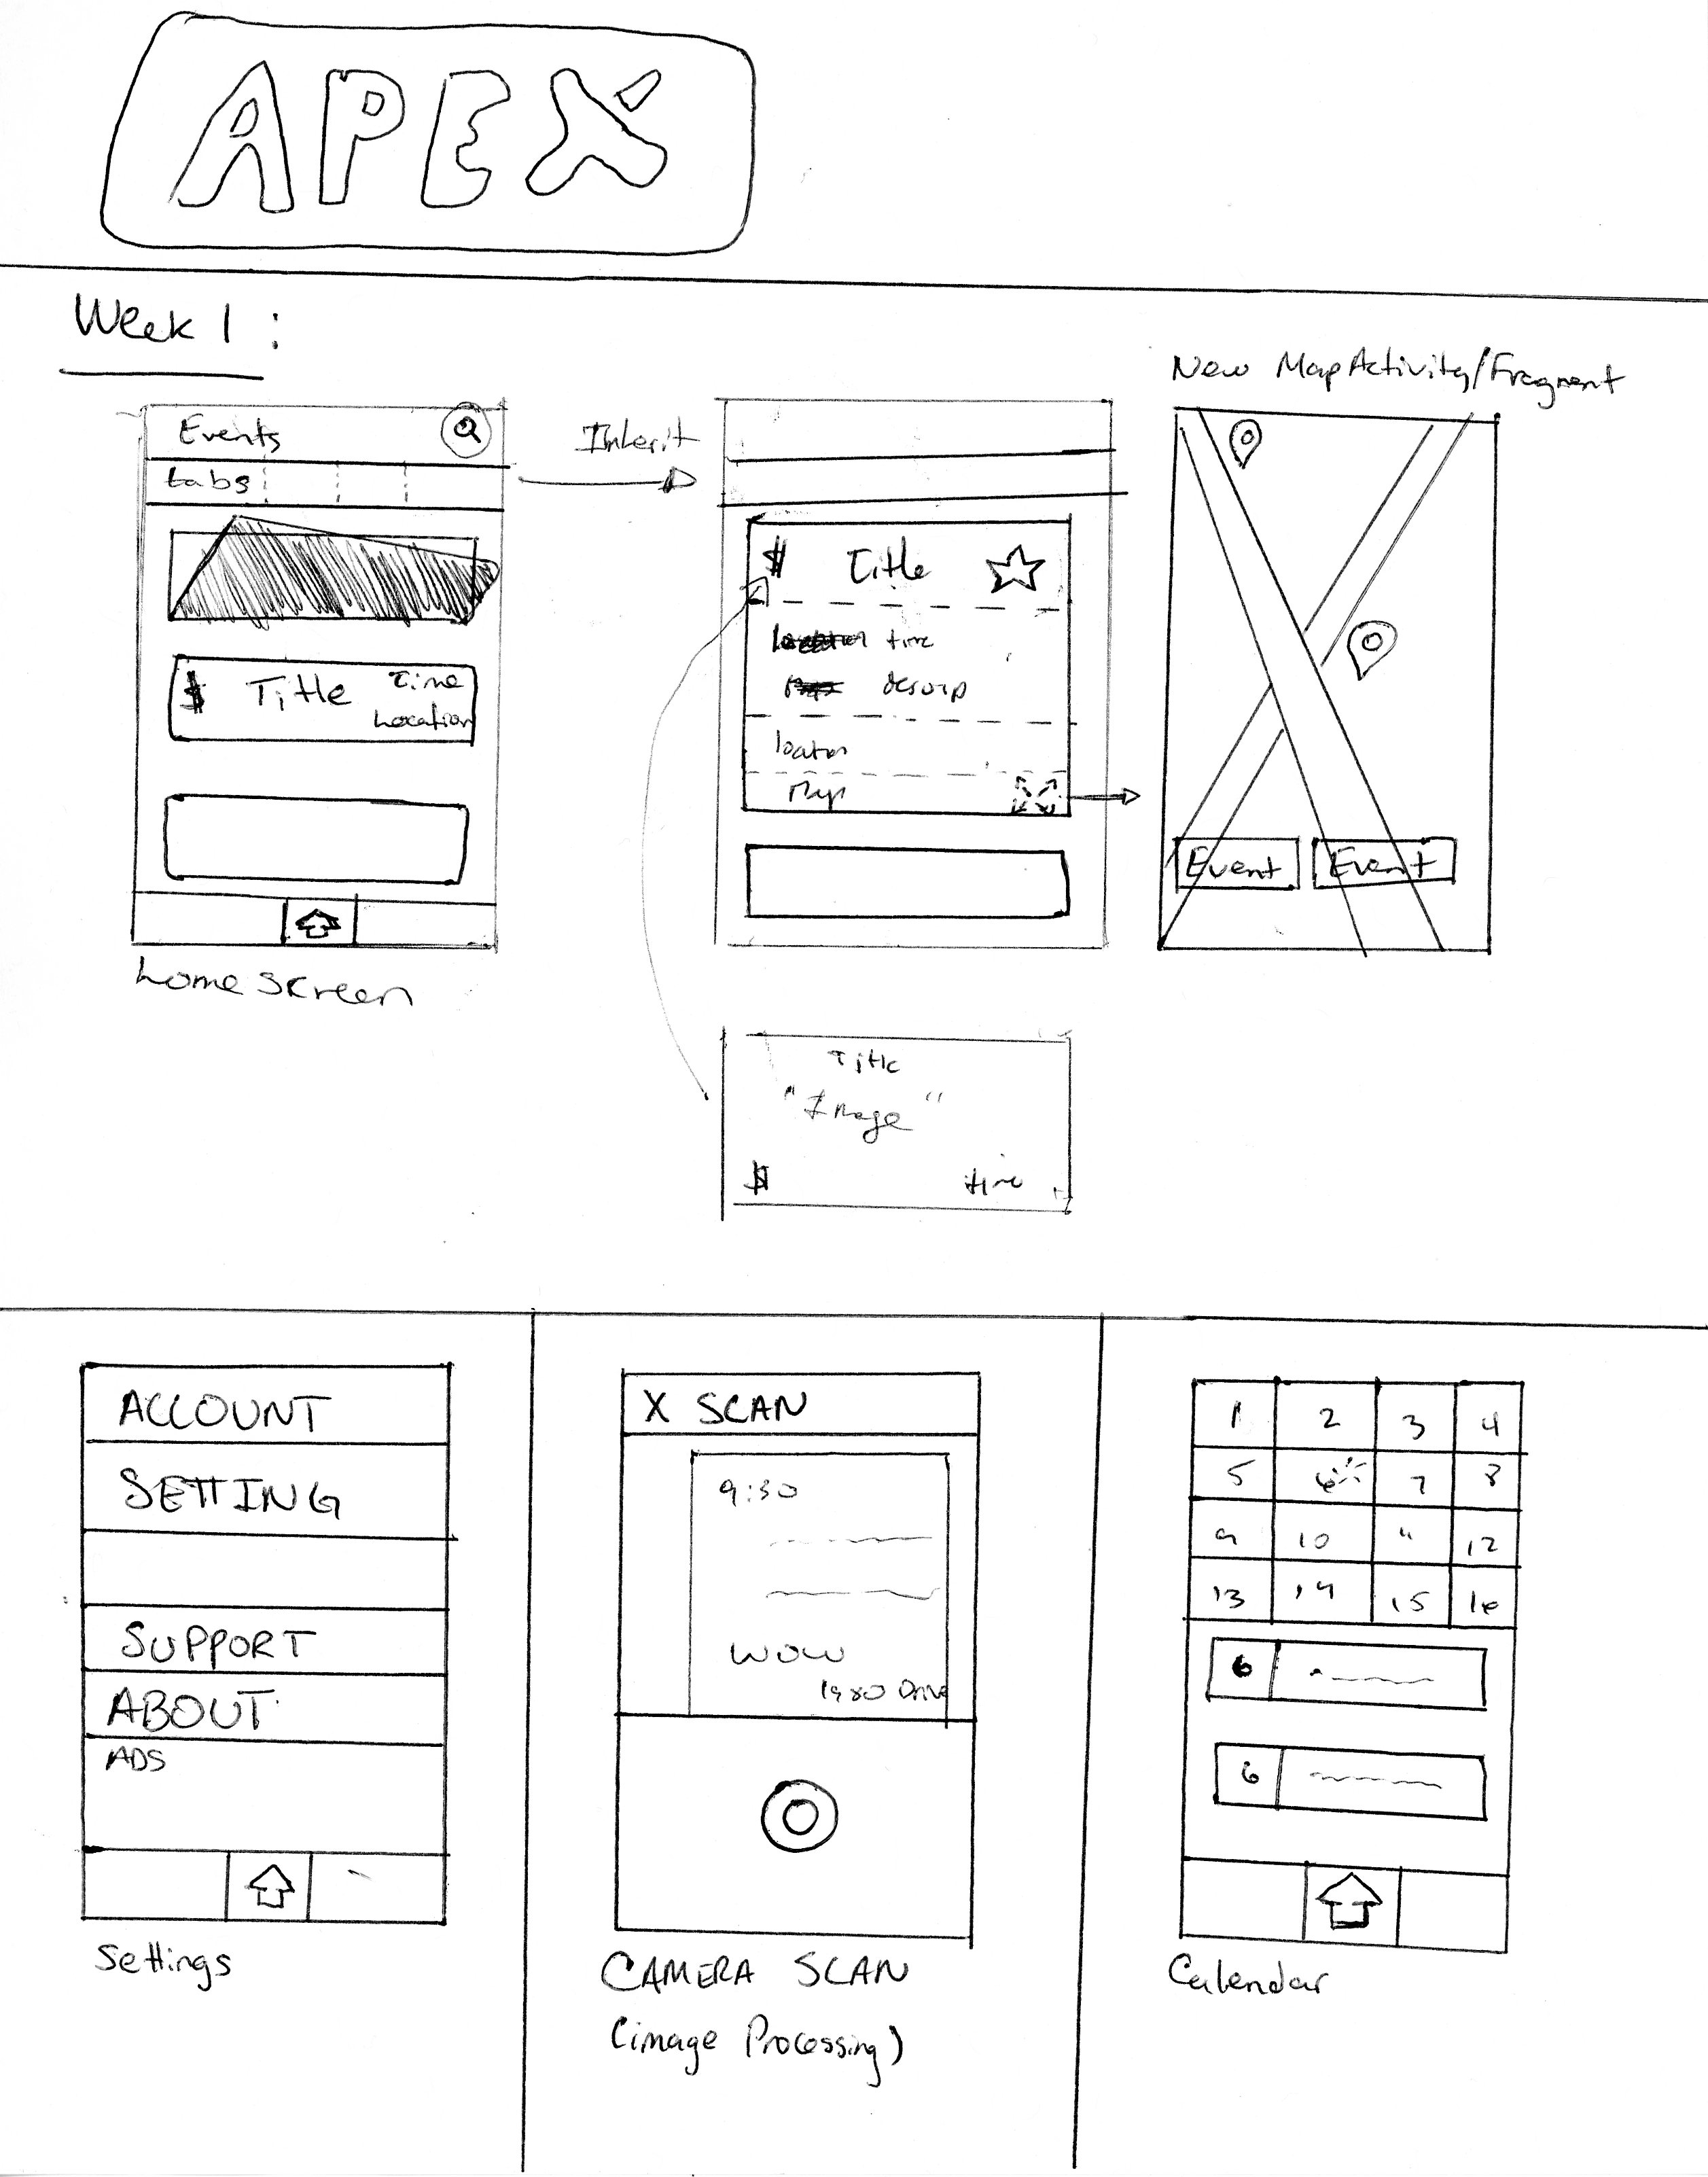 APEX
Week 1 :
Events
tabs
$ Title Time
Location
home screen
Inherit
$ Title
time
descrip
location
Map
New MapActivity/Fragment
Event Event
Title
"Image"
$ time
ACCOUNT
SETTING
SUPPORT
ABOUT
ADS
Settings
X SCAN
9:30
WOW
1980 Drive
CAMERA SCAN
(image Processing)
1 2 3 4
5 6 7 8
9 10 11 12
13 14 15 16
6
6
Calendar